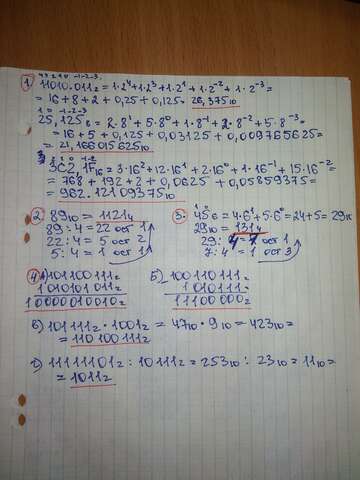 4 3 2 1 0 -1 -2 -3
1. 11010.011₂ = 1·2⁴+1·2³+1·2¹+1·2⁻²+1·2⁻³=
= 16 + 8 + 2 + 0,25 + 0,125 = 26,375₁₀
1 0 -1 -2 -3
25,125₈ = 2·8¹+5·8⁰+1·8⁻¹+2·8⁻²+5·8⁻³=
= 16 + 5 + 0,125 + 0,03125 + 0,009765625=
= 21,166015625₁₀
2 1 0 -1 -2
3C2,1F₁₆ = 3·16²+12·16¹+2·16⁰+1·16⁻¹+15·16⁻²=
= 768 + 192 + 2 + 0,0625 + 0,05859375=
= 962.12109375₁₀
2. 89₁₀ = 1121₄
89 : 4 = 22 ост 1
22 : 4 = 5 ост 2
5 : 4 = 1 ост 1
1 0
3. 45₆ = 4·6¹+5·6⁰=24+5=29₁₀
29₁₀ = 131₄
29 : 4 = 7 ост 1
7 : 4 = 1 ост 3
4. А) 101100111₂
1010101011₂
10000010010₂
Б) 100110111₂
1010111₂
11100000₂
В) 101111₂ · 1001₂ = 47₁₀ · 9₁₀ = 423₁₀ =
= 110100111₂
Г) 11111101₂ : 10111₂ = 253₁₀ : 23₁₀ = 11₁₀=
= 1011₂